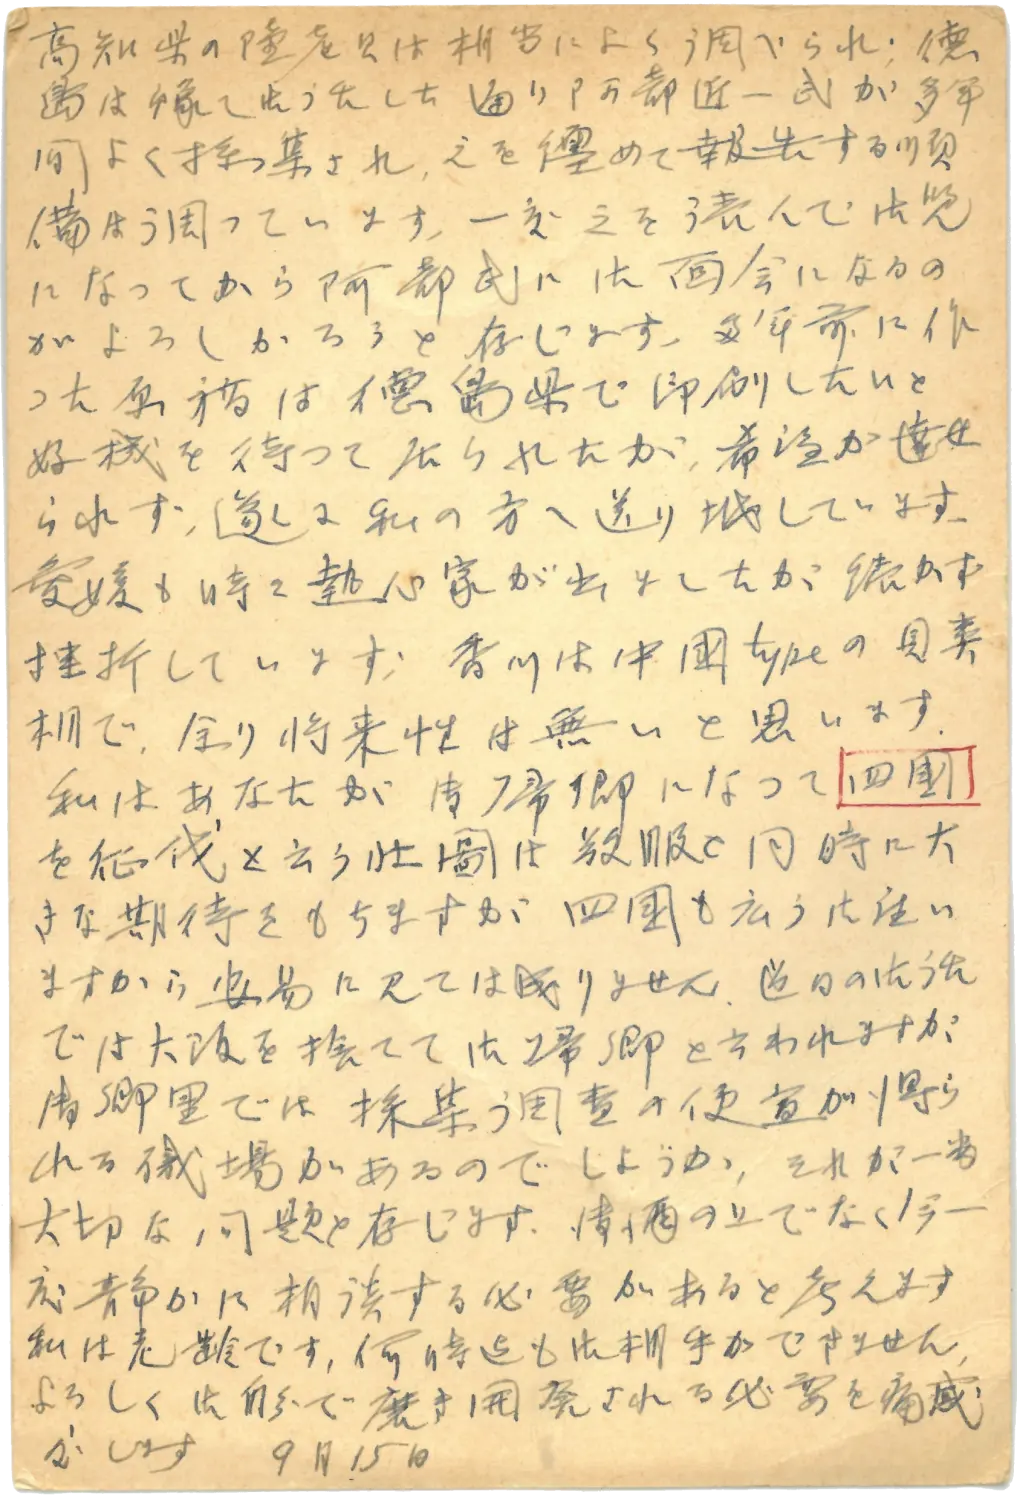 高知県の陸産貝は相当によく調べられ、徳
島は予て御話した通り阿部近一氏が多年
間よく採集され、之を纒めて報告する順
備は調っています。一度之を読んで御覧
になってから阿部氏に御面会になるの
がよろしかろうと存じます。多年前に作
った原稿は徳島県で印刷したいと
好機を待って居られたが、希望が達せ
られず、遂に私の方へ送り越しています。
愛媛も時々熱心家が出ましたが続かず
挫折しています。香川は中國typeの貝类
相で、余り将来性は無いと思います。
私はあなたが御帰郷になって四國
を征伐と云う壮圖は敬服と同時に大
きな期待をもちますが四國も広う御座い
ますから安易に見ては成りません。近日の御話
では大阪を捨てて御帰郷と云われますが
御郷里では採集調査の便宜が得ら
れる職場があるのでしょうか、それが一番
大切な問題と存じます。情酒の上でなく今一
応静かに相談する必要があると考えます
私は老齢です、何時迄も御相手ができません、
よろしく御自分で磨き開発される必要を痛感
致します　9月15日